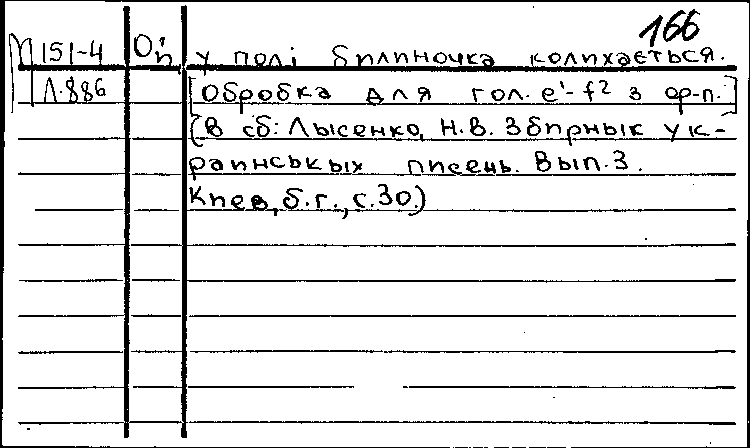 166
М 151-4 Ой у полі билиночка колихається.
Л.886 [Обробка для гол. e'-f² з ор-п.]
(В сб: Лысенко, Н.В. Збирнык ук-
раинськых писень. Вып.3.
Киев, б.г., с.30.)